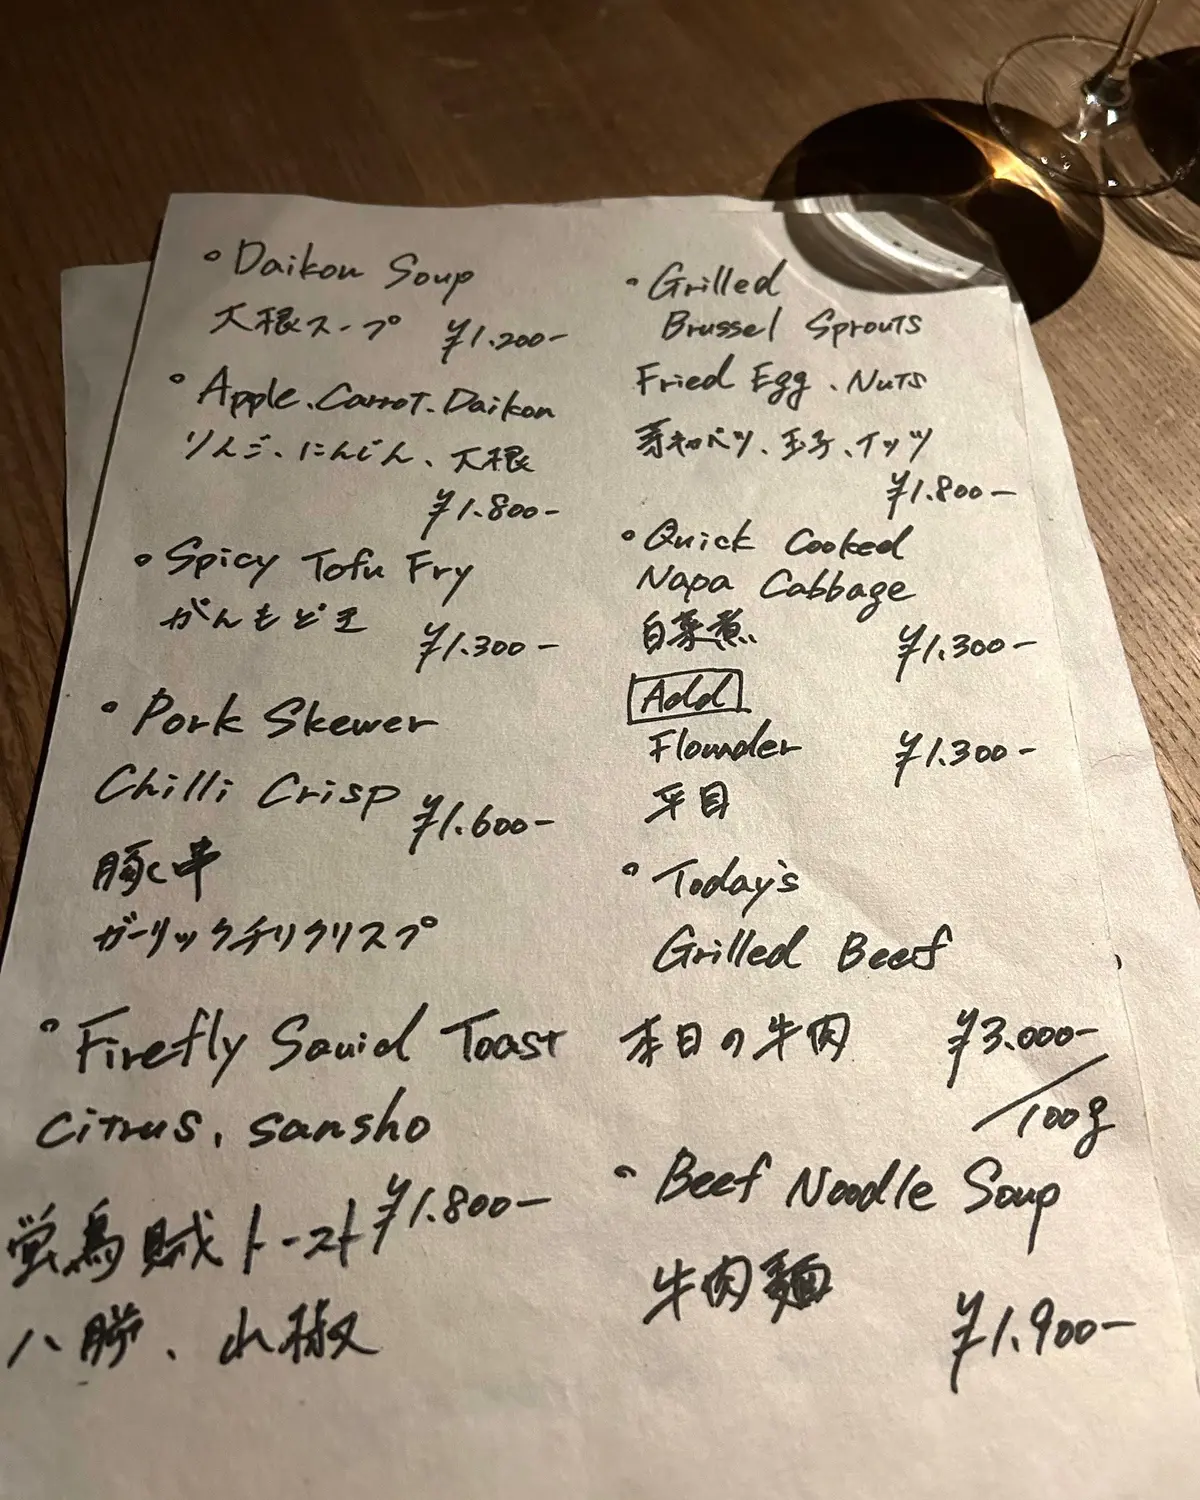 Daikon Soup
大根スープ ¥1.200-
Apple、Carrot、Daikon
りんご、にんじん、大根
¥1.800-
Spicy Tofu Fry
がんもどき
¥1.300-
Pork Skewer
Chilli Crisp ¥1.600-
豚串
ガーリックチリクリスプ
Firefly Squid Toast
Citrus, sansho
蛍烏賊トースト ¥1.800-
八朔、山椒
Grilled
Brussel Sprouts
Fried Egg、Nuts
芽キャベツ、玉子、ナッツ
¥1.800-
Quick Cooked
Napa Cabbage
白菜煮 ¥1.300-
Add
Flounder ¥1.300-
平目
Today's
Grilled Beef
本日の牛肉 ¥3.000-
/100g
Beef Noodle Soup
牛肉麺
¥1.900-